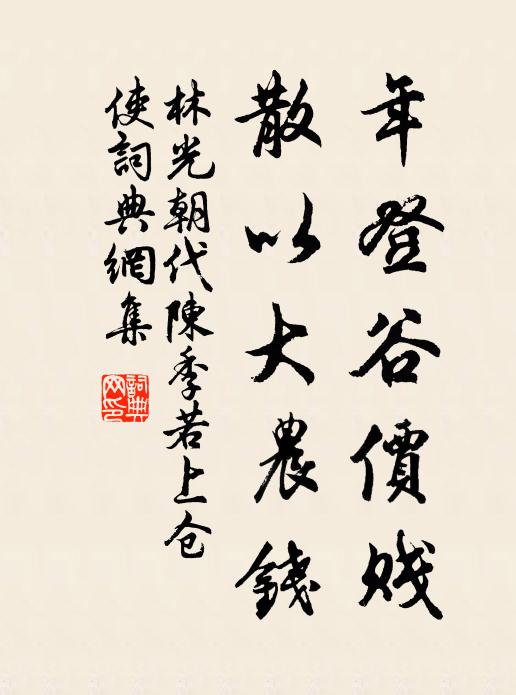 年登谷價賤
散以大農錢
林光朝代陳季若上仓
使詞典網集
詞典
网印